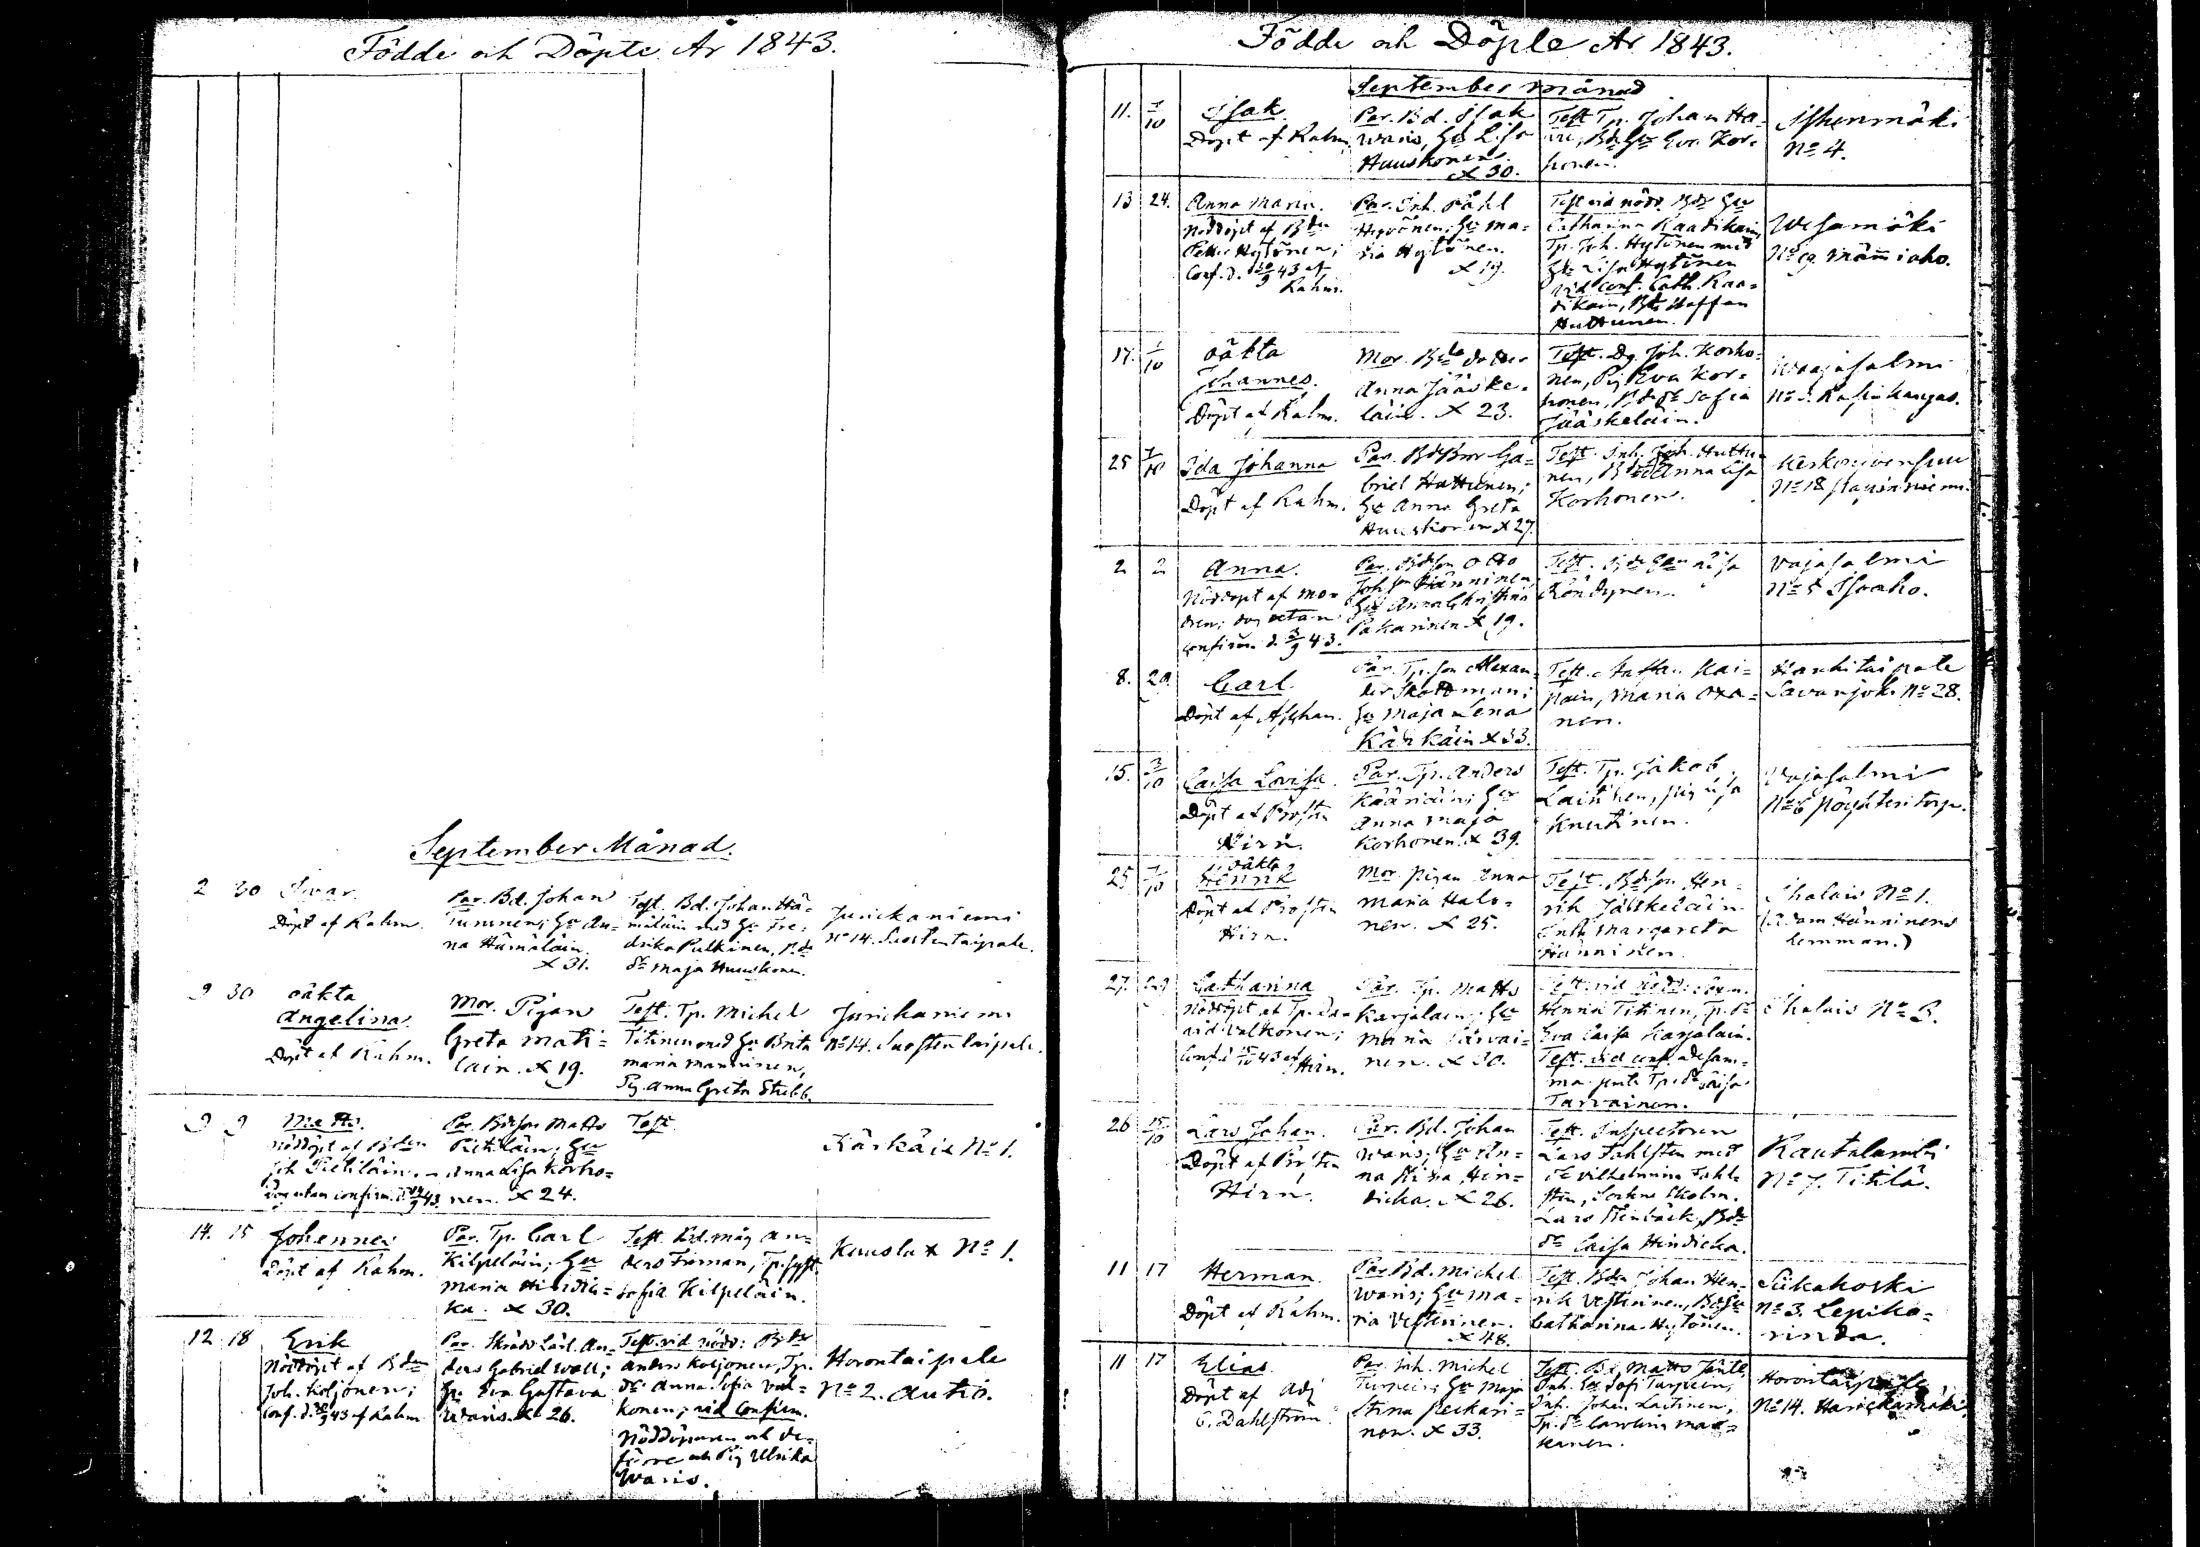 Födde och Döpte År 1843.
September Månad.
2 30 Ivar.
Döpt af Rahm.
Par. Bd. Johan
Tuminen; Hu An-
na Hämäläin.
x 31.
Test. Bd. Johan Hä-
mäläin med Hu Fre-
drika Pulkinen, Bde
dr Maja Huuskonen.
Jurickaniemi
No 14. Suostentaipale.
9 30 oäkta
Angelina.
Döpt af Rahm.
Mor. Pigan
Greta Mati-
lain. x 19.
Test. Tp. Michel
Titinen med Hu Brita
Maria Manninen,
Pig. Anna Greta Stubb.
Jurickaniemi
No 14. Suostentaipale.
9 9 Matts.
Nöddöpt af Bden
Joh Pietiläin.
Dog utan confirm.
Par. Bdeson Matts
Pietiläin; Hu
Anna Lisa Korho-
nen. x 24.
Test.
Kärkäis No 1.
14. 15 Johannes
Döpt af Rahm.
Par. Tp. Carl
Kilpeläin; Hu
Maria Hindic-
ka. x 30.
Test. Bd. måg An-
ders Finman, Tp. syst.
Sofia Kilpeläin.
Kuusla No 1.
12 18 Erik
Nöddöpt af Bden
Joh. Koljonen;
Conf. d. 30/9 43 af Rahm.
Par. Skrädd Lärl. An-
ders Gabriel Wall;
Hu Eva Gustava
Waris. x 26.
Test. vid nödd: Bde
Anders Koljonen, Tp.
dr Anna Sofia Val-
konen; vid Confirm.
Nöddöparen och de
förre och Pig Ulrika
Waris.
Horontaipale
No 2. Autio.
Födde och Döpte År 1843.
September månad
11. 1/10 Isak
Döpt af Rahm.
Par. Bd. Isak
Waris, Hu Lisa
Huuskonen.
x 30.
Test Tp. Johan Ha-
, Bde Hu Eva Kor-
honen.
No 4.
13 24. Anna Maria.
Nöddöpt af Bden
Petter Hytönen;
Conf. d. 30/9 43 af
Rahm.
Par. Inh. Påhl
Hyvönen; Hu Ma-
ria Hytönen.
x 19.
Test vid nödd. Bde Hu
Catharina Raadikain,
Tp. Joh. Hytönen med
Hu Lisa Hytönen
vid conf. Cath. Raa-
dikain, Bde Staffan
Huttunen.
Wesamäki
No 19. Männiaho.
17. 1/10 oäkta
Johannes.
Döpt af Rahm.
Mor. Bde dotter
Anna Jääske-
läin. x 23.
Test. Dg. Joh. Korho-
nen, Pig Eva Kor-
honen, Bde dr Sofia
Jääskeläin.
Waajasalmi
25 1/10 Ida Johanna
Döpt af Rahm.
Par. Bde Bror Ga-
briel Huttunen;
Hu Anna Greta
Huuskonen x 27.
Test. Inh. Joh. Huttu-
nen, Bde dr Anna Lisa
Korhonen.
No 18
2 2 Anna.
Nöddöpt af mo-
dren; dog utan
confirm. d. 3/9 43.
Par. Bdeson Otto
Johsson Hänninen
Hu Anna Christina
Pakarinen x 19.
Test. Bde Hu Caisa
Röndynen.
Vajasalmi
No 5 Isoaho.
8. 20. Carl
Döpt af Asphan.
Par. Tp. son Alexan-
der Skottman;
Hu Maja Lena
Kärkäin x 33.
Test. Staffan Kai-
pain, Maria Oxa-
nen.
Hankitaipale
Savanjoki No 28.
15. 3/10 Caisa Lovisa.
Döpt af Prosten
Hirn.
Par. Tp. Anders
Kääriäin; Hu
Anna Maja
Korhonen. x 39.
Test. Tp. Jakob
Laitinen, Pig Lisa
Knutinen.
Vajasalmi
No 6
25 1/10 oäkta
Henrik
Döpt af Prosten
Hirn.
Mor. Pigan Anna
Maria Halo-
nen. x 25.
Test. Bdeson Hen-
rik Jääskeläin
Enk. Margareta
Hänninen.
Ihalais No 1.
(Adam Hänninens
hemman.)
27. Catharina
Nöddöpt af Tp. Da-
vid Valkonen;
Hirn.
Par. Tp. Matts
Karjalain; Hu
Maria Tarvai-
nen. x 30.
Test. vid nödd:
Henric Titinen, Tp. dr
Eva Caisa Karjalain.
Test. vid conf. desam-
ma samt Tp. dr Caisa
Tarvainen.
Ihalais No 3.
26 15/10 Lars Johan.
Döpt af Prosten
Hirn.
Par. Bd. Johan
Waris; Hu An-
na Stina Hin-
dicka. x 26.
Test. Inspectoren
Lars Fahlsten med
dr Vilhelmina Fahl-
sten,
Lars Stenbäck, Bde
dr Caisa Hindicka.
Rautalambi
No 7. Titilä.
11 17 Herman.
Döpt af Rahm.
Par. Bd. Michel
Waris; Hu Ma-
ria Vesterinen.
x 48.
Test. Bden Johan Hen-
rik Vesterinen, Bde Hu
Catharina Hytönen.
Siikakoski
No 3. Lepika-
rinda.
11 17 Elias.
Döpt af Adj
C. Dahlström.
Par. Inh. Michel
Turpein; Hu Maja
Stina Peckari-
nen. x 33.
Test. Bd. Matts Jäntti,
Inh. Hu Sofi Turpein,
Inh. Johan Laitinen,
Tp. dr Carolina Mar-
kanen.
Horontaipale
No 14.